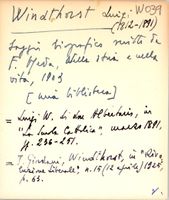 Windthorst Luigi, W039
(1812-1891)
Saggio biografico scritto da
F. Meda, nella storia e nella
vita, 1903
[mia biblioteca]
= Luigi W. di Albertario, in
"La Scuola Cattolica", marzo 1891,
p. 236-251.
= I. Giordani, Windthorst, in "Rivo-
luzione Liberale", n. 15 (12 aprile) 1925,
p. 63.
V.